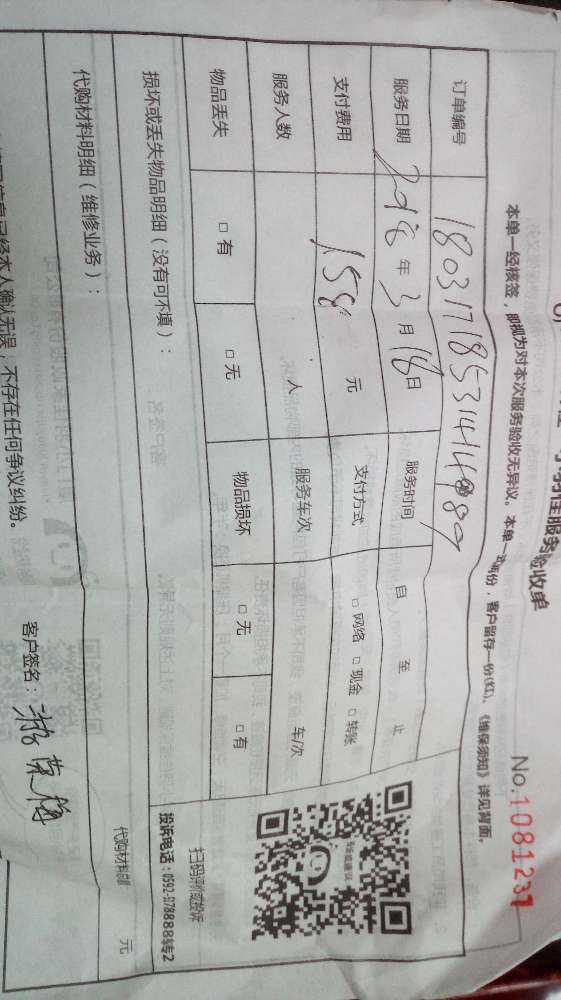 服务验收单
No.1081237
本单一经核签，即视为对本次服务验收无异议。本单一式两份，客户留存一份(红)、《维保须知》详见背面。
订单编号
服务日期 2018 年 3 月 18 日 服务时间 自 至 止
支付费用 158 元 支付方式 □ 网络 □ 现金 □ 转账
服务人数 人 服务车次 车/次
物品丢失 □ 有 □ 无 物品损坏 □ 无 □ 有
扫码评价或投诉
损坏或丢失物品明细（没有可不填）：
代购材料明细（维修业务）：
元
已经本人确认无误，不存在任何争议纠纷。
客户签名：